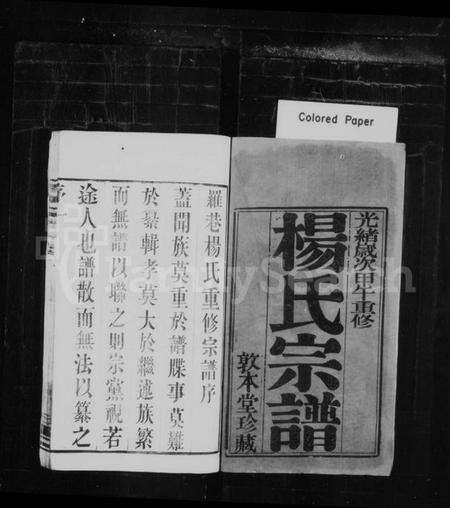 Colored Paper
光緒歲次甲午重修
楊氏宗譜
敦本堂珍藏
羅巷楊氏重修宗譜序
蓋聞族莫重於譜牒事莫難
於纂輯孝莫大於繼述族繁
而無譜以聯之則宗黨視若
途人也譜散而無法以纂之
序
FamilySearch